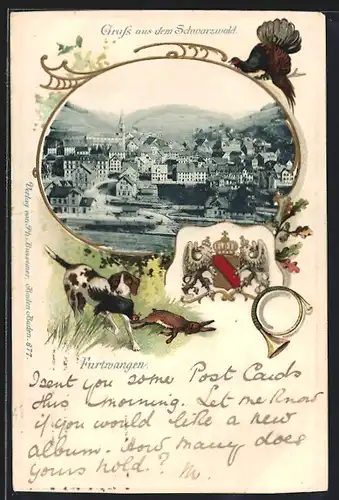 Gruß aus dem Schwarzwald.
Verlag von Ph. Bussemer, Baden-Baden. 877.
Furtwangen
I sent you some Post Cards
this morning. Let me know
if you would like a new
album. How many does
yours hold?  M.